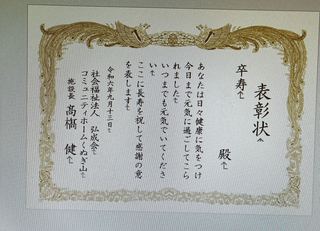 表彰状
卒寿
殿
あなたは日々健康に気をつけ
今日まで元気に過ごしてこら
れました
いつまでも元気でいてくださ
い
ここに長寿を祝して感謝の意
を表します
令和六年九月十三日
社会福祉法人 弘成会
コミュニティホームくぬぎ山
施設長 髙橋 健